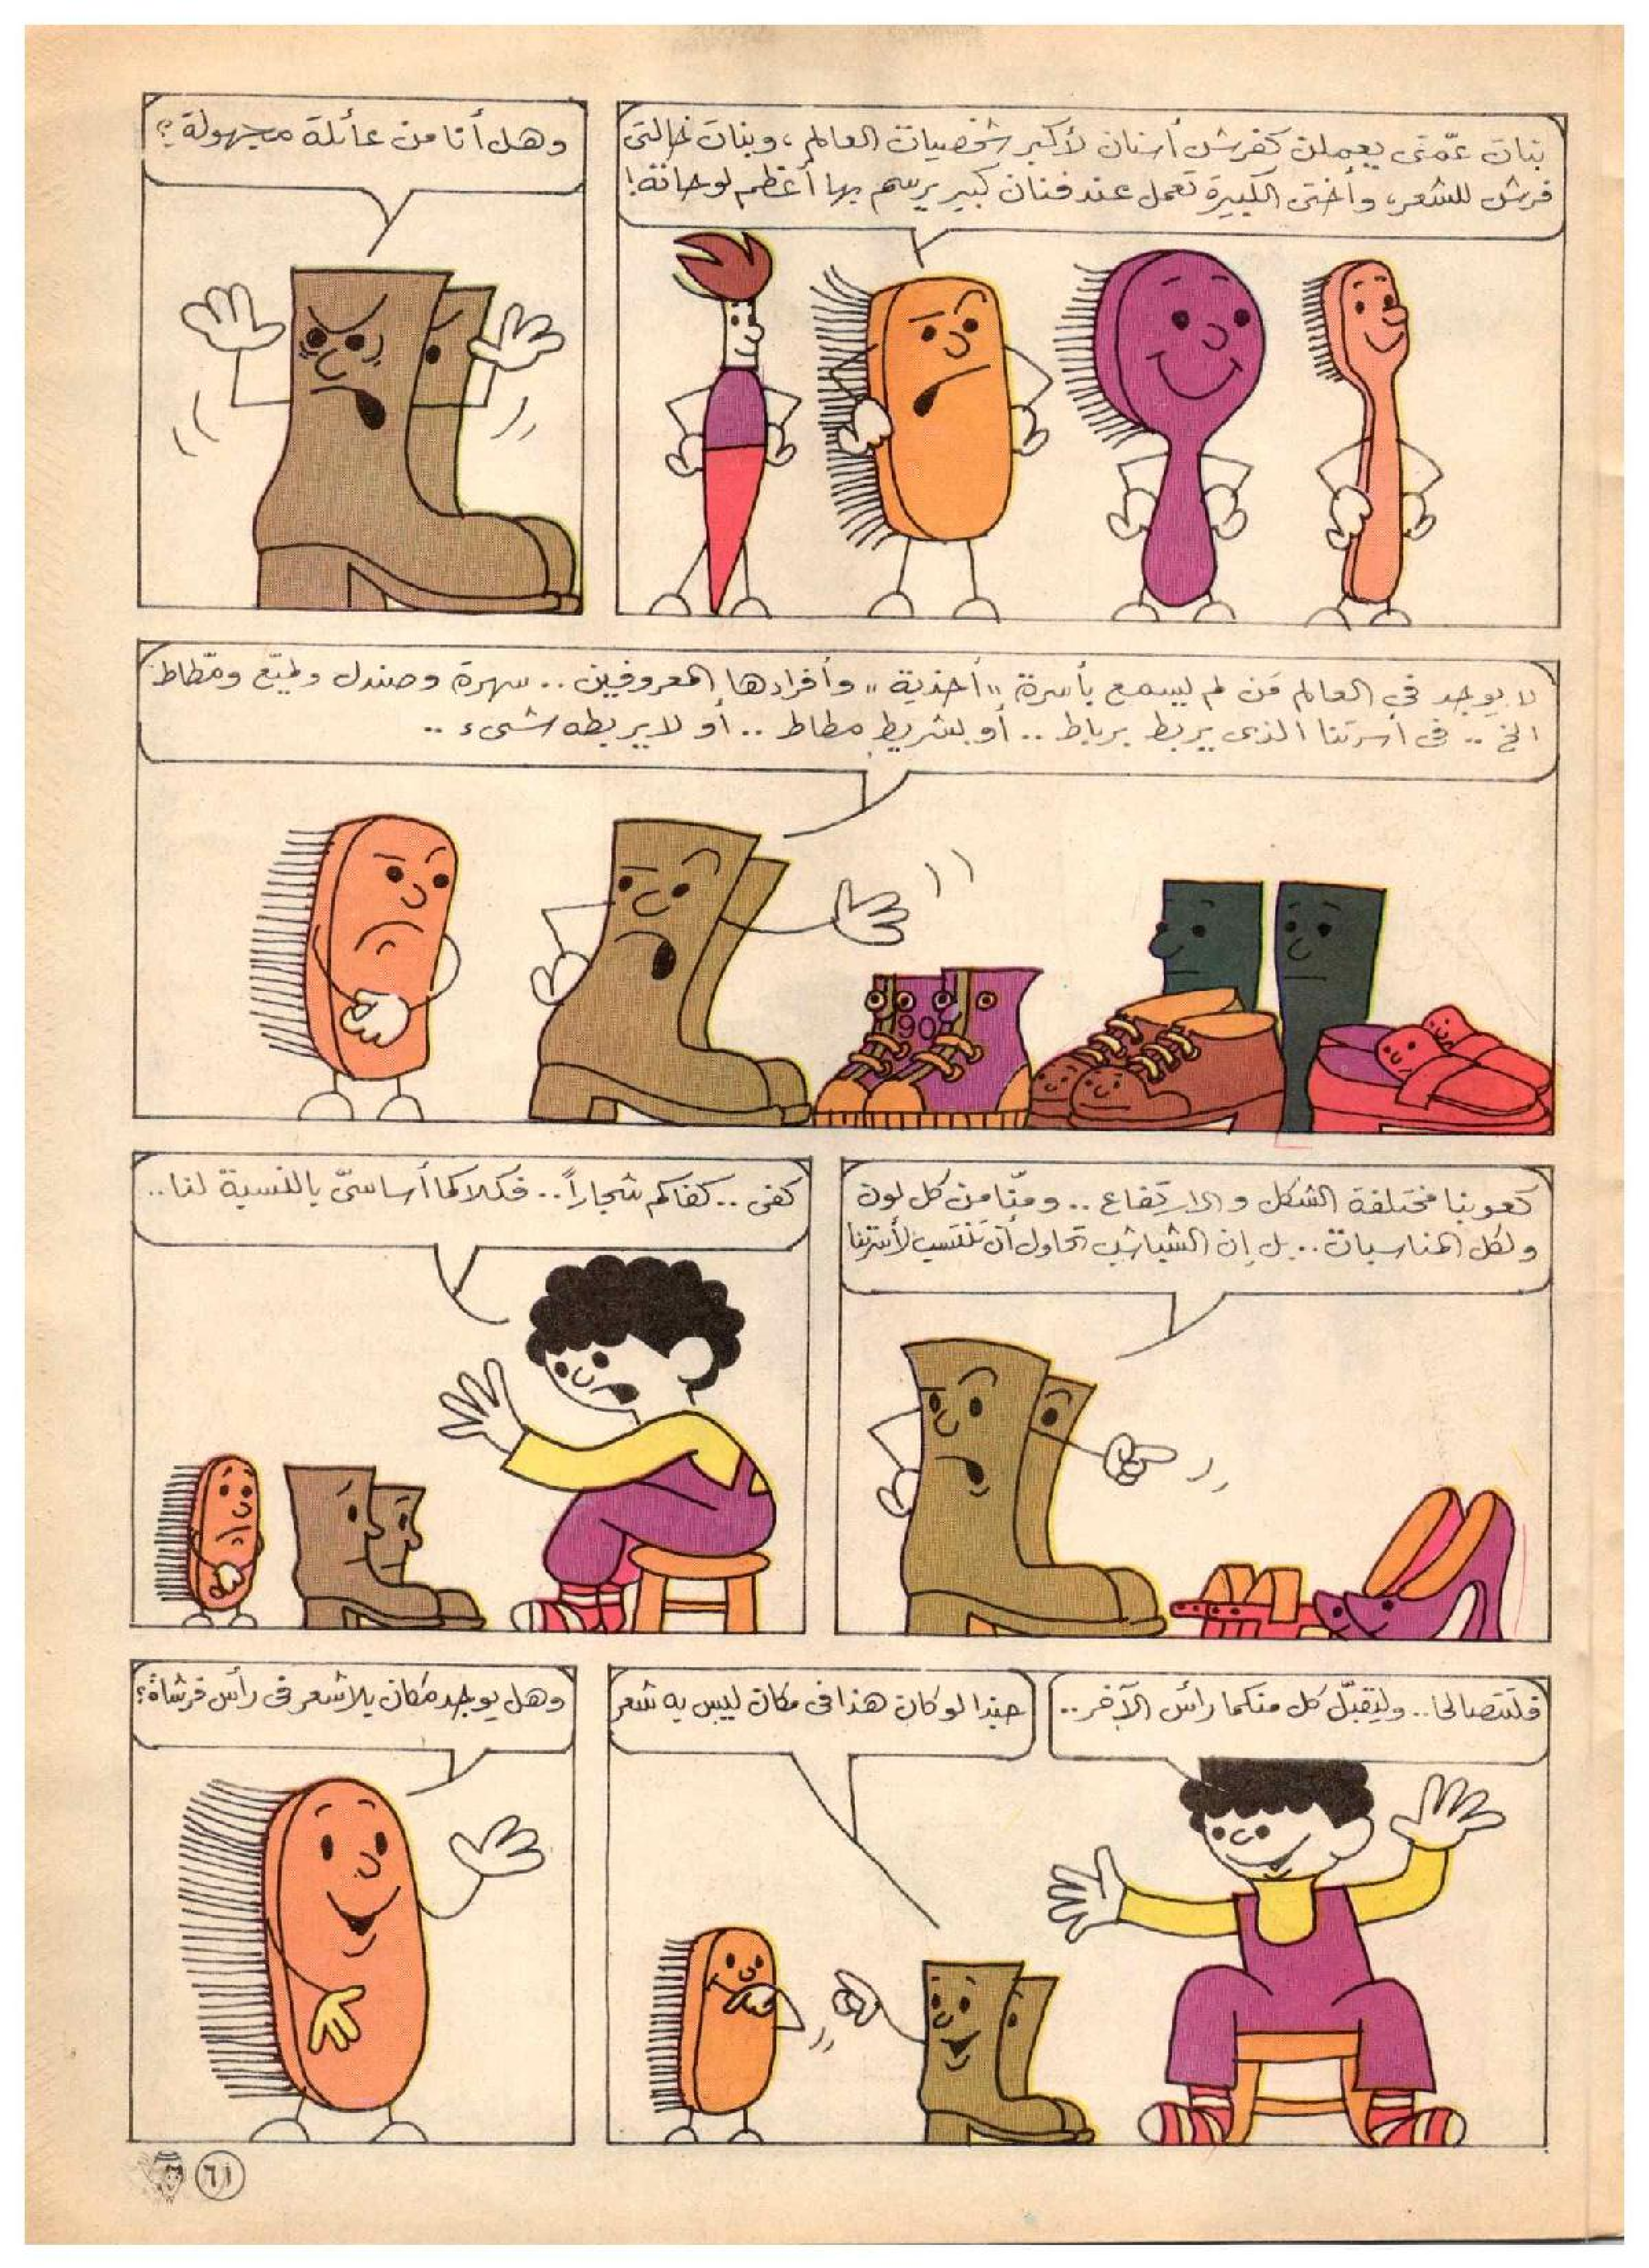 بنات عمّتى يعملن كفرش أسنان لأكبر شخصيات العالم، وبنات خالتى
فرش للشعر، وأختى الكبيرة تعمل عند فنان كبير يرسم بها أعظم لوحاته!
وهل أنا من عائلة مجهولة؟
لا يوجد فى العالم مَن لم يسمع بأسرة "أحذية" وأفرادها المعروفين.. سهرة وصندل ولميّع ومطّاط
الخ .. فى أسرتنا الذى يربط برباط .. أو بشريط مطاط .. أو لا يربطه شىء ..
كعوبنا مختلفة الشكل والارتفاع .. ومنّا من كل لون
ولكل المناسبات .. بل إن الشباشب تحاول أن تنتسب لأسرتنا
كفى .. كفاكم شجاراً .. فكلاكما أساسىّ بالنسبة لنا ..
فلتتصالحا .. وليقبّل كل منكما رأس الآخر ..
حبذا لو كان هذا فى مكان ليس به شعر
وهل يوجد مكان بلا شعر فى رأس فرشاة؟
٦١